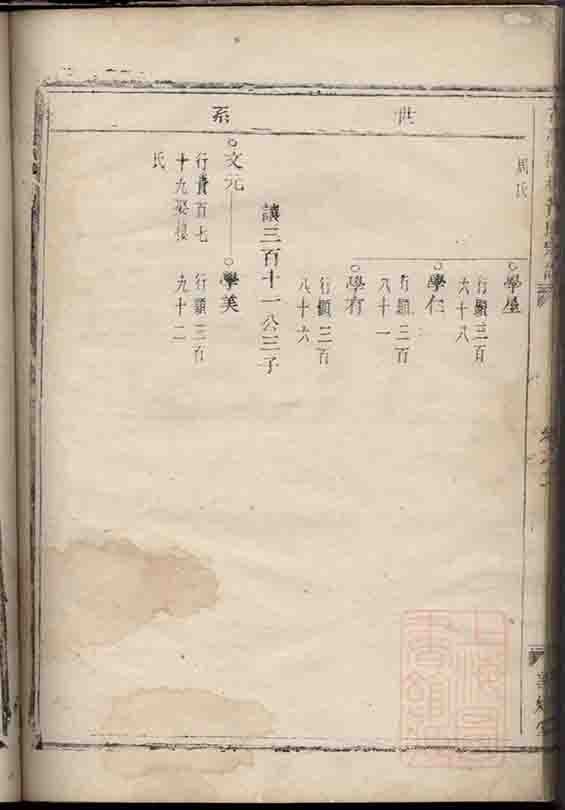 世系
周氏
學星
行顯三百
六十八
學仁
行顯三百
八十一
學有
行顯三百
八十六
讓三百十一公三子
文元
行貴百七
十九娶樓
氏
學美
行顯三百
九十二
上海圖書館藏